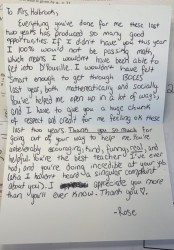 To Mrs. Holbrook,
Everything you've done for me these last
two years has produced so many good
opportunities. If I didn't have you this year
I 100% would not be passing math,
which means I wouldn't have been able to
get into D'Youville. I wouldn't have felt
smart enough to get through BOCES
last year, both mathematically and socially.
You've helped me open up in a lot of ways,
and I have to give you a huge chunk
of respect and credit for me feeling on these
last two years. Thank you so much for
going out of your way to help me. You're
unbelievably accomplishing, kind, funny, real, and
helpful. You're the best teacher I've ever
had, and you're doing incredible at your job
(aka I haven't heard a singular complaint
about you). I appreciate you more
than you'll ever know. Thank you ♡
-Rose